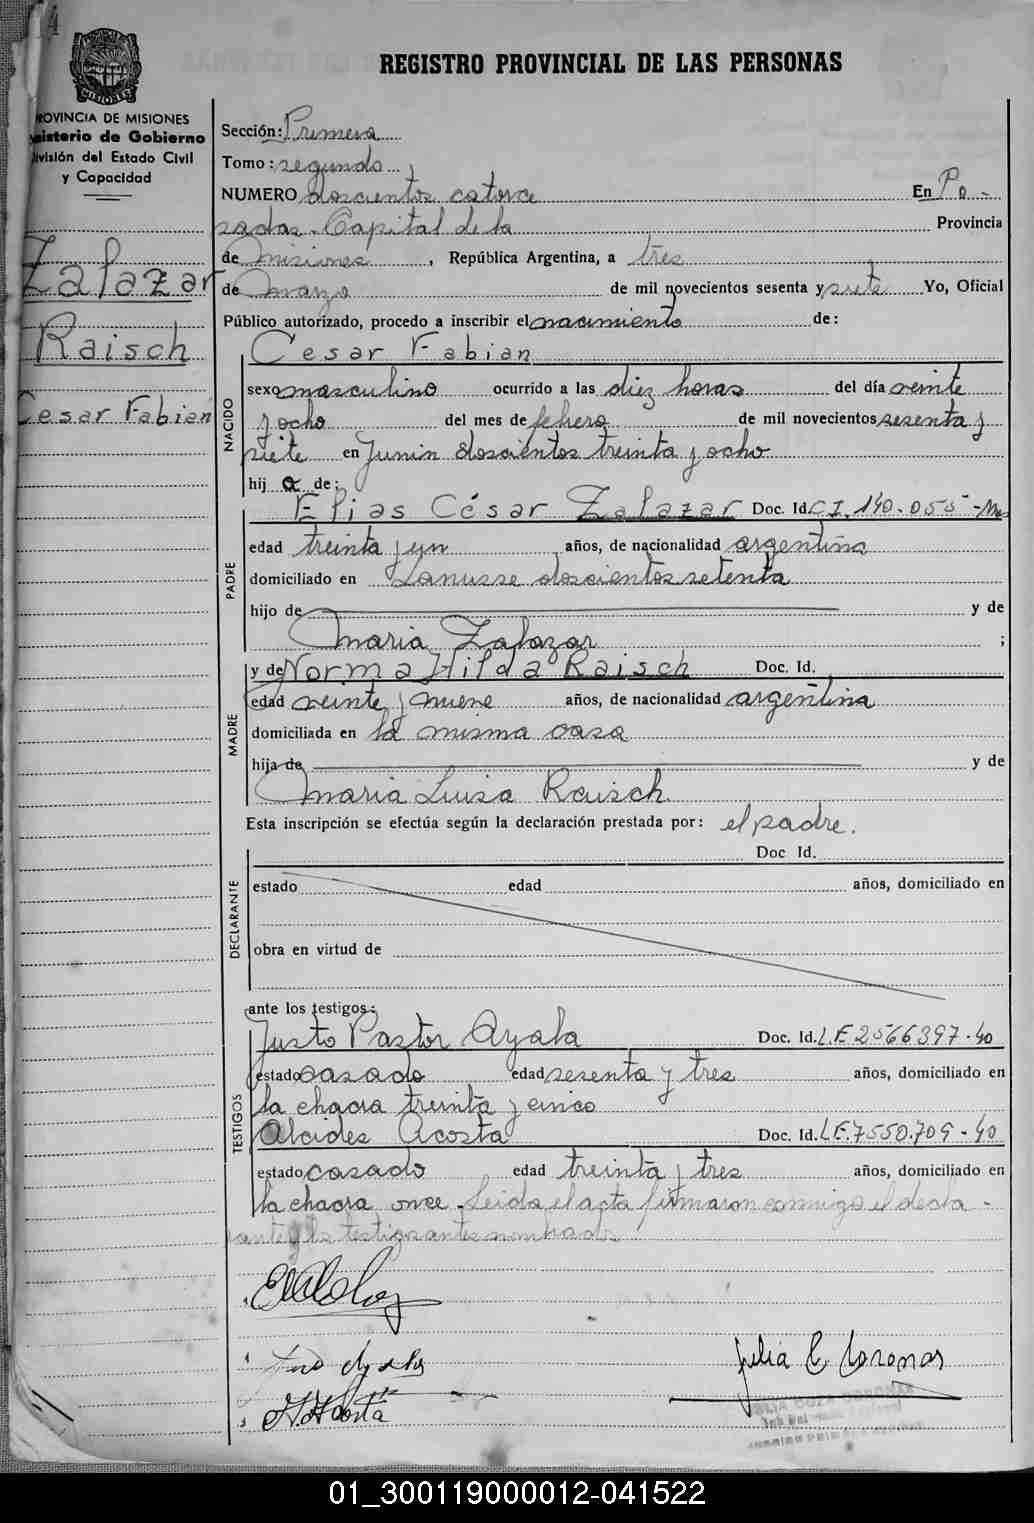 PROVINCIA DE MISIONES
Ministerio de Gobierno
División del Estado Civil
y Capacidad
Zalazar
Raisch
Cesar Fabian
REGISTRO PROVINCIAL DE LAS PERSONAS
Sección: Primera
Tomo: segundo
NUMERO doscientos catorce En Po-
sadas. Capital de la Provincia
de Misiones, República Argentina, a tres
de marzo de mil novecientos sesenta y siete Yo, Oficial
Público autorizado, procedo a inscribir el nacimiento de:
NACIDO
Cesar Fabian
sexo masculino ocurrido a las diez horas del día veinte
y ocho del mes de febrero de mil novecientos sesenta y
siete en Junin doscientos treinta y ocho
hij o de:
PADRE
Elias César Zalazar Doc. Id. CI. 140.055-
edad treinta y un años, de nacionalidad argentina
domiciliado en Lanusse doscientos setenta
hijo de y de
Maria Zalazar ;
MADRE
y de Norma Hilda Raisch Doc. Id.
edad veinte y nueve años, de nacionalidad argentina
domiciliada en la misma casa
hija de y de
Maria Luisa Raisch
Esta inscripción se efectúa según la declaración prestada por: el padre.
DECLARANTE
Doc Id.
estado edad años, domiciliado en
obra en virtud de
ante los testigos:
TESTIGOS
Justo Pastor Ayala Doc. Id. L.E. 2566397-40
estado casado edad sesenta y tres años, domiciliado en
la chacra treinta y cinco
Alcides Acosta Doc. Id. L.E. 7550.709-40
estado casado edad treinta y tres años, domiciliado en
la chacra once. Leida el acta firmaron conmigo el decla-
rante y los testigos antes nombrados
01_300119000012-041522